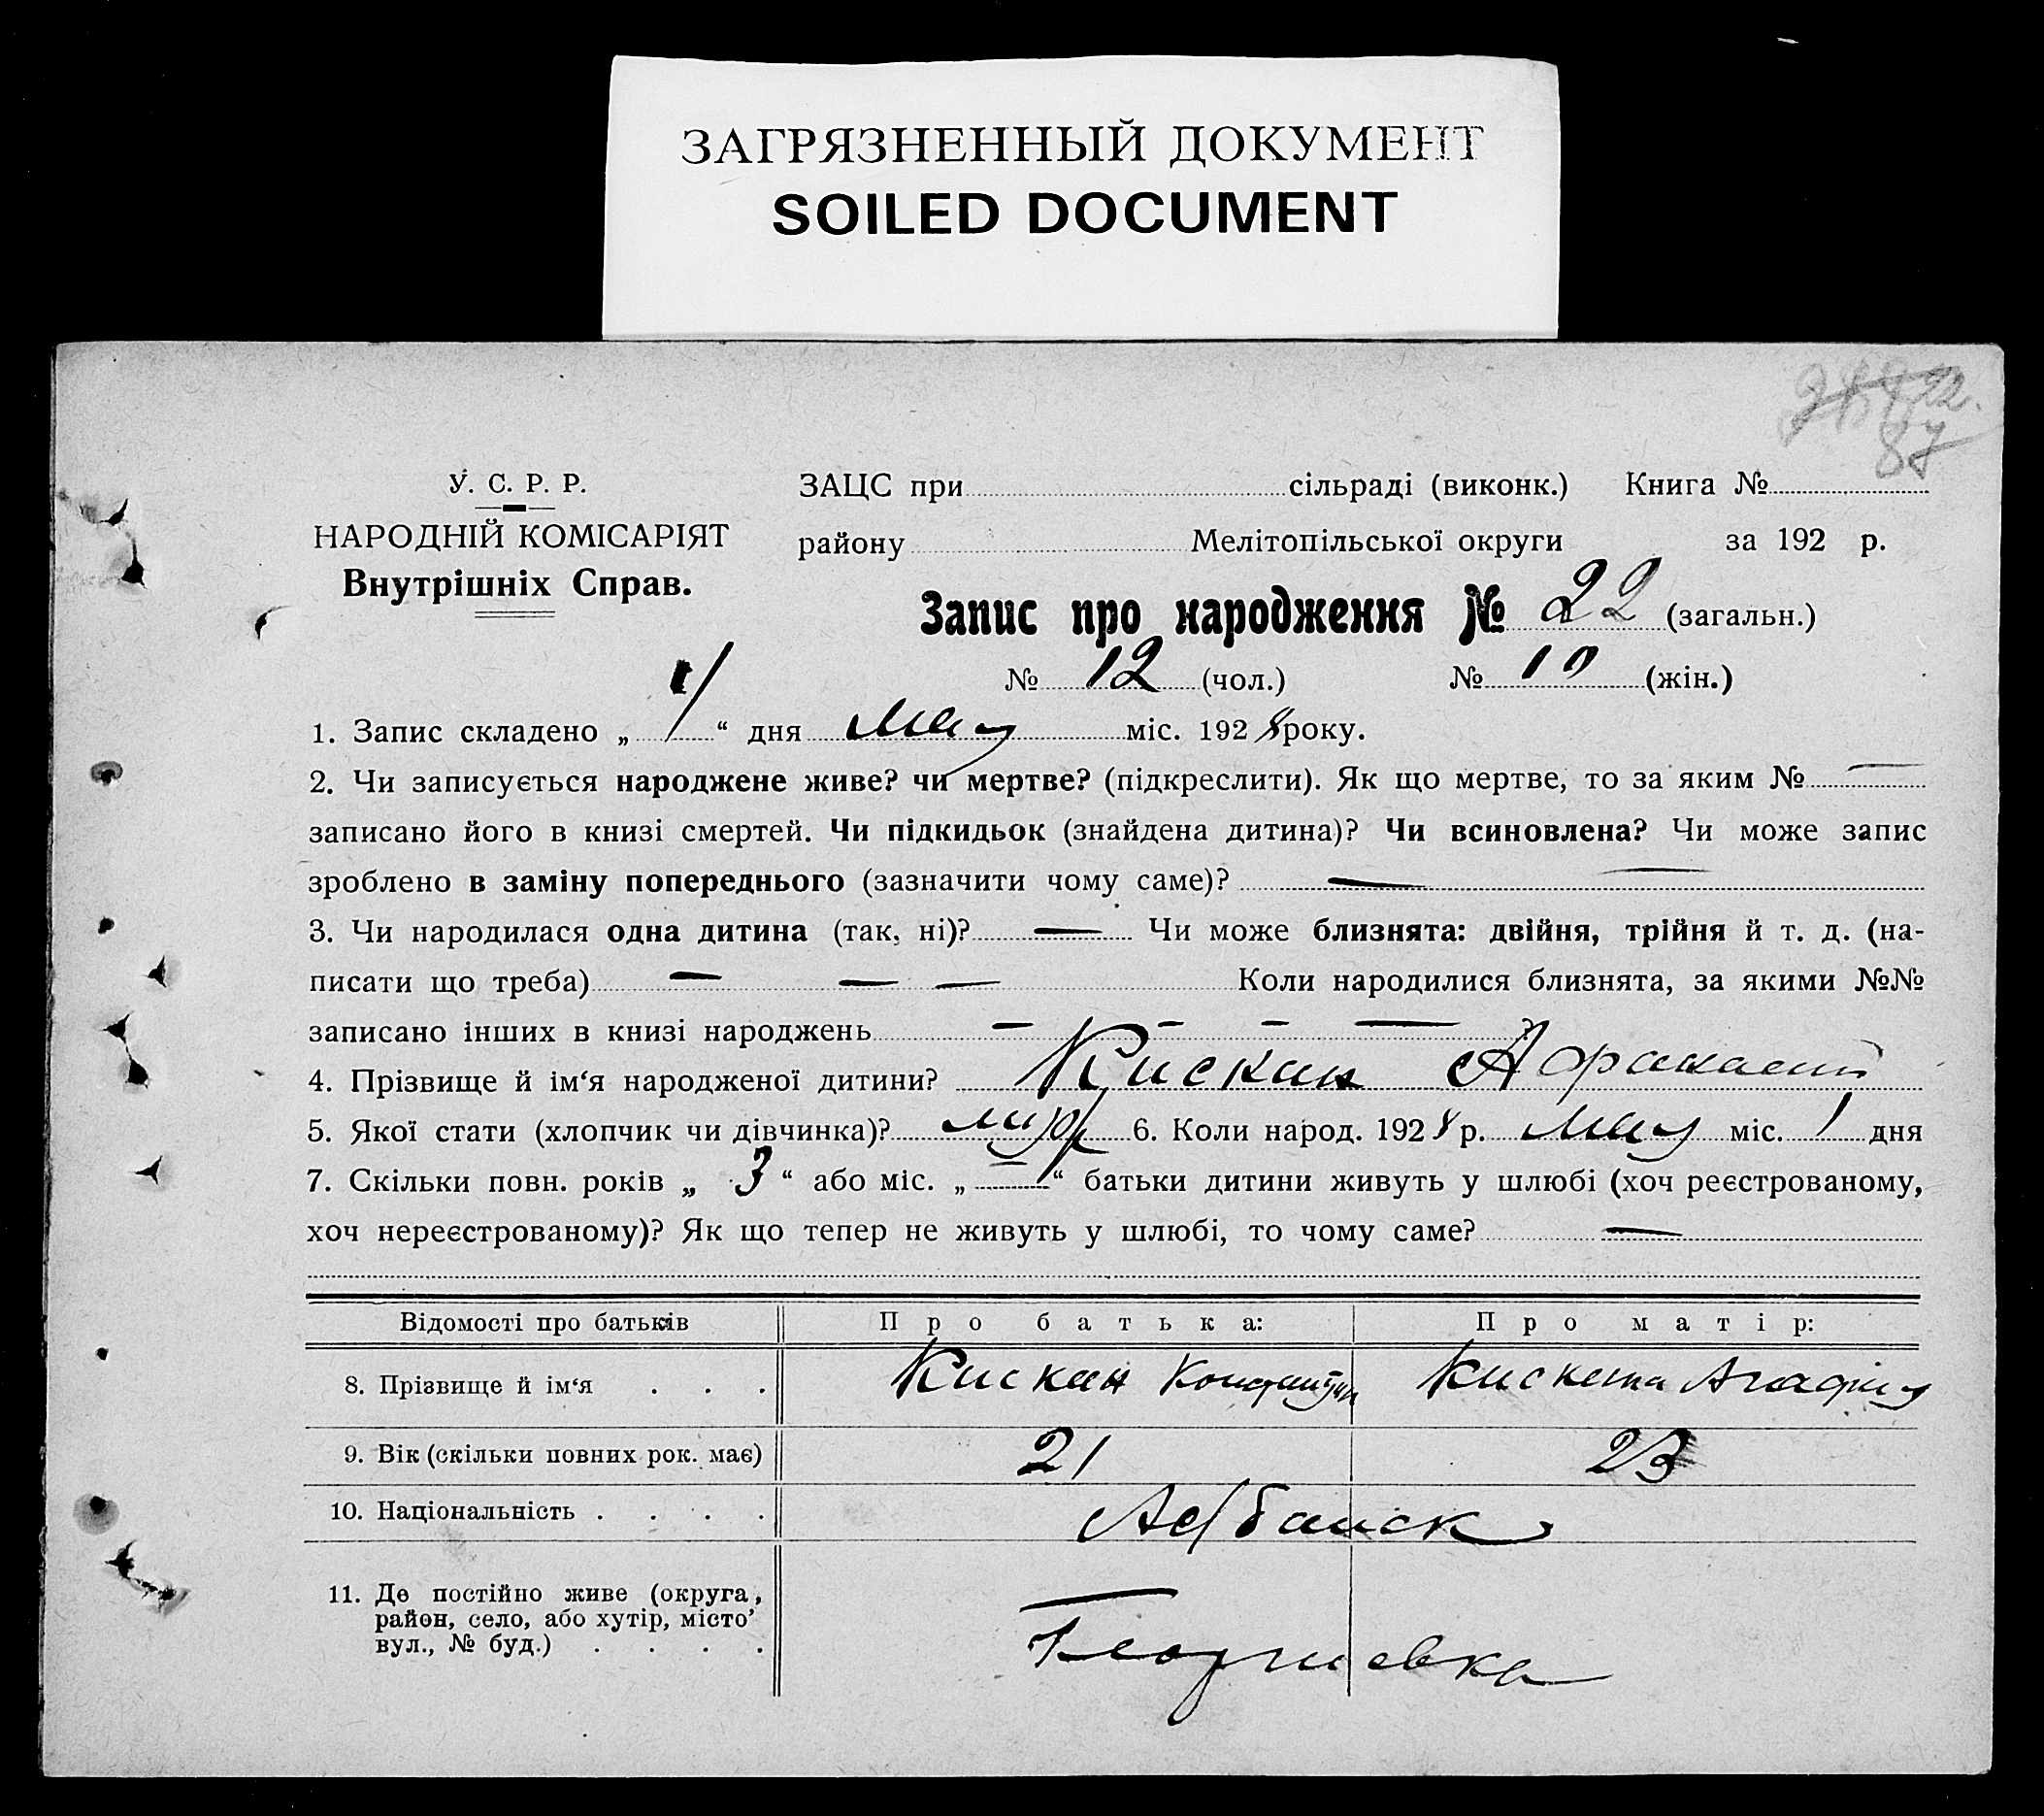 ЗАГРЯЗНЕННЫЙ ДОКУМЕНТ
SOILED DOCUMENT
87
У. С. Р. Р.
НАРОДНІЙ КОМІСАРІЯТ
Внутрішніх Справ.
ЗАЦС при сільраді (виконк.) Книга №
району Мелітопільської округи за 192 р.
Запис про народження № 22 (загальн.)
№ 12 (чол.) № 10 (жін.)
1. Запис складено „ 1 “ дня мая міс. 1928 року.
2. Чи записується народжене живе? чи мертве? (підкреслити). Як що мертве, то за яким № —
записано його в книзі смертей. Чи підкидьок (знайдена дитина)? Чи всиновлена? Чи може запис
зроблено в заміну попереднього (зазначити чому саме)? — —
3. Чи народилася одна дитина (так, ні)? — Чи може близнята: двійня, трійня й т. д. (на-
писати що треба) — — — Коли народилися близнята, за якими №№
записано інших в книзі народжень — — — —
4. Прізвище й ім‘я народженої дитини? Кискин Афанасий
5. Якої стати (хлопчик чи дівчинка)? муж 6. Коли народ. 1928 р. мая міс. 1 дня
7. Скільки повн. років „ 3 “ або міс. „ — “ батьки дитини живуть у шлюбі (хоч реєстрованому,
хоч нереєстрованому)? Як що тепер не живуть у шлюбі, то чому саме? —
Відомості про батьків Про батька: Про матір:
8. Прізвище й ім‘я . . . Кискин Константин Кискина Агафия
9. Вік (скільки повних рок. має) 21 23
10. Національність . . . . Албанск
11. Де постійно живе (округа,
район, село, або хутір, місто
вул., № буд.) . . . .
Георгиевка